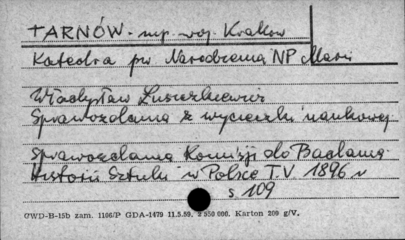 + TARNÓW - mp. woj. Kraków
Katedra pw Narodzenia NP Marii
Władysław Łuszczkiewicz
Sprawozdania z wycieczki naukowej
Sprawozdania Komisji do Badania
Historii Sztuki w Polsce T.V. 1896 r
s 109
OWD-B-15b zam. 1106/P GDA-1479 11.5.59. 2 550 000. Karton 200 g/V.